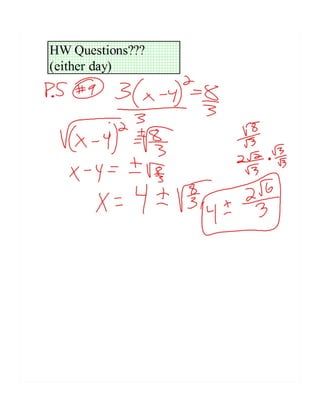 HW Questions???
(either day)
P.S #9 3(x-4)²=8
3 3
√(x-4)² = ±√8/3
x-4 = ±√8/3
x = 4 ± √8/3
√8/√3
2√2/√3 · √3/√3
4 ± 2√6/3